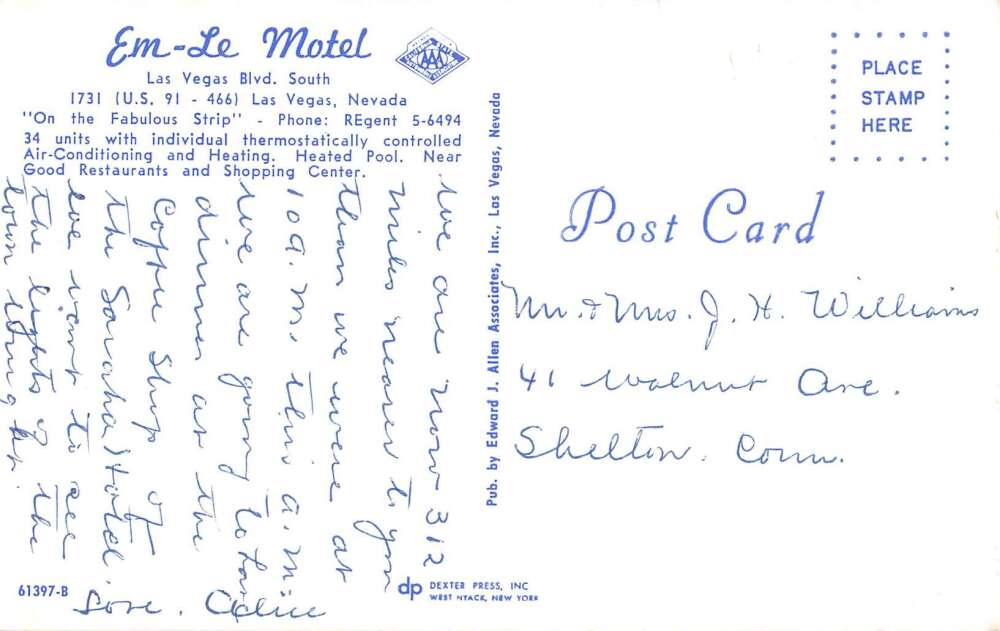 Em-Le Motel
AAA
Las Vegas Blvd. South
1731 (U.S. 91 - 466) Las Vegas, Nevada
"On the Fabulous Strip" - Phone: REgent 5-6494
34 units with individual thermostatically controlled
Air-Conditioning and Heating. Heated Pool. Near
Good Restaurants and Shopping Center.
We are now 312
miles nearer to you
than we were at
10 a.m. this a.m.
We are going to have
dinner at the
Coffee Shop of
the Sahara Hotel.
We want to see
the lights of the
town tonight.
Love.
61397-B
Pub. by Edward J. Allen Associates, Inc., Las Vegas, Nevada
dp DEXTER PRESS, INC
WEST NYACK, NEW YORK
PLACE
STAMP
HERE
Post Card
Mr. & Mrs. J. H. Williams
41 Walnut Ave.
Shelton. Conn.